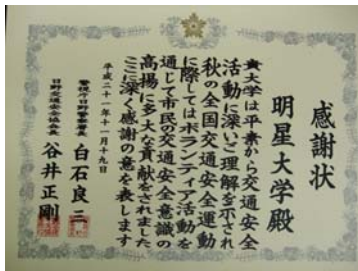 感謝状
明星大学殿
貴大学は平素から交通安全
活動に深いご理解を示され
秋の全国交通安全運動
に際してはボランティア活動を
通じて市民の交通安全意識の
高揚に多大な貢献をされました
ここに深く感謝の意を表します
平成二十一年十一月十九日
警視庁日野警察署長
白石良二
日野交通安全協会長
谷井正剛